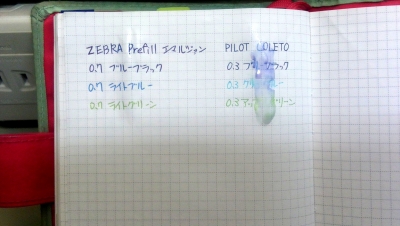 ZEBRA Prefill エマルジョン
0.7 ブルーブラック
0.7 ライトブルー
0.7 ライトグリーン
PILOT COLETO
0.3 ブルーブラック
0.3
0.3 アップルグリーン